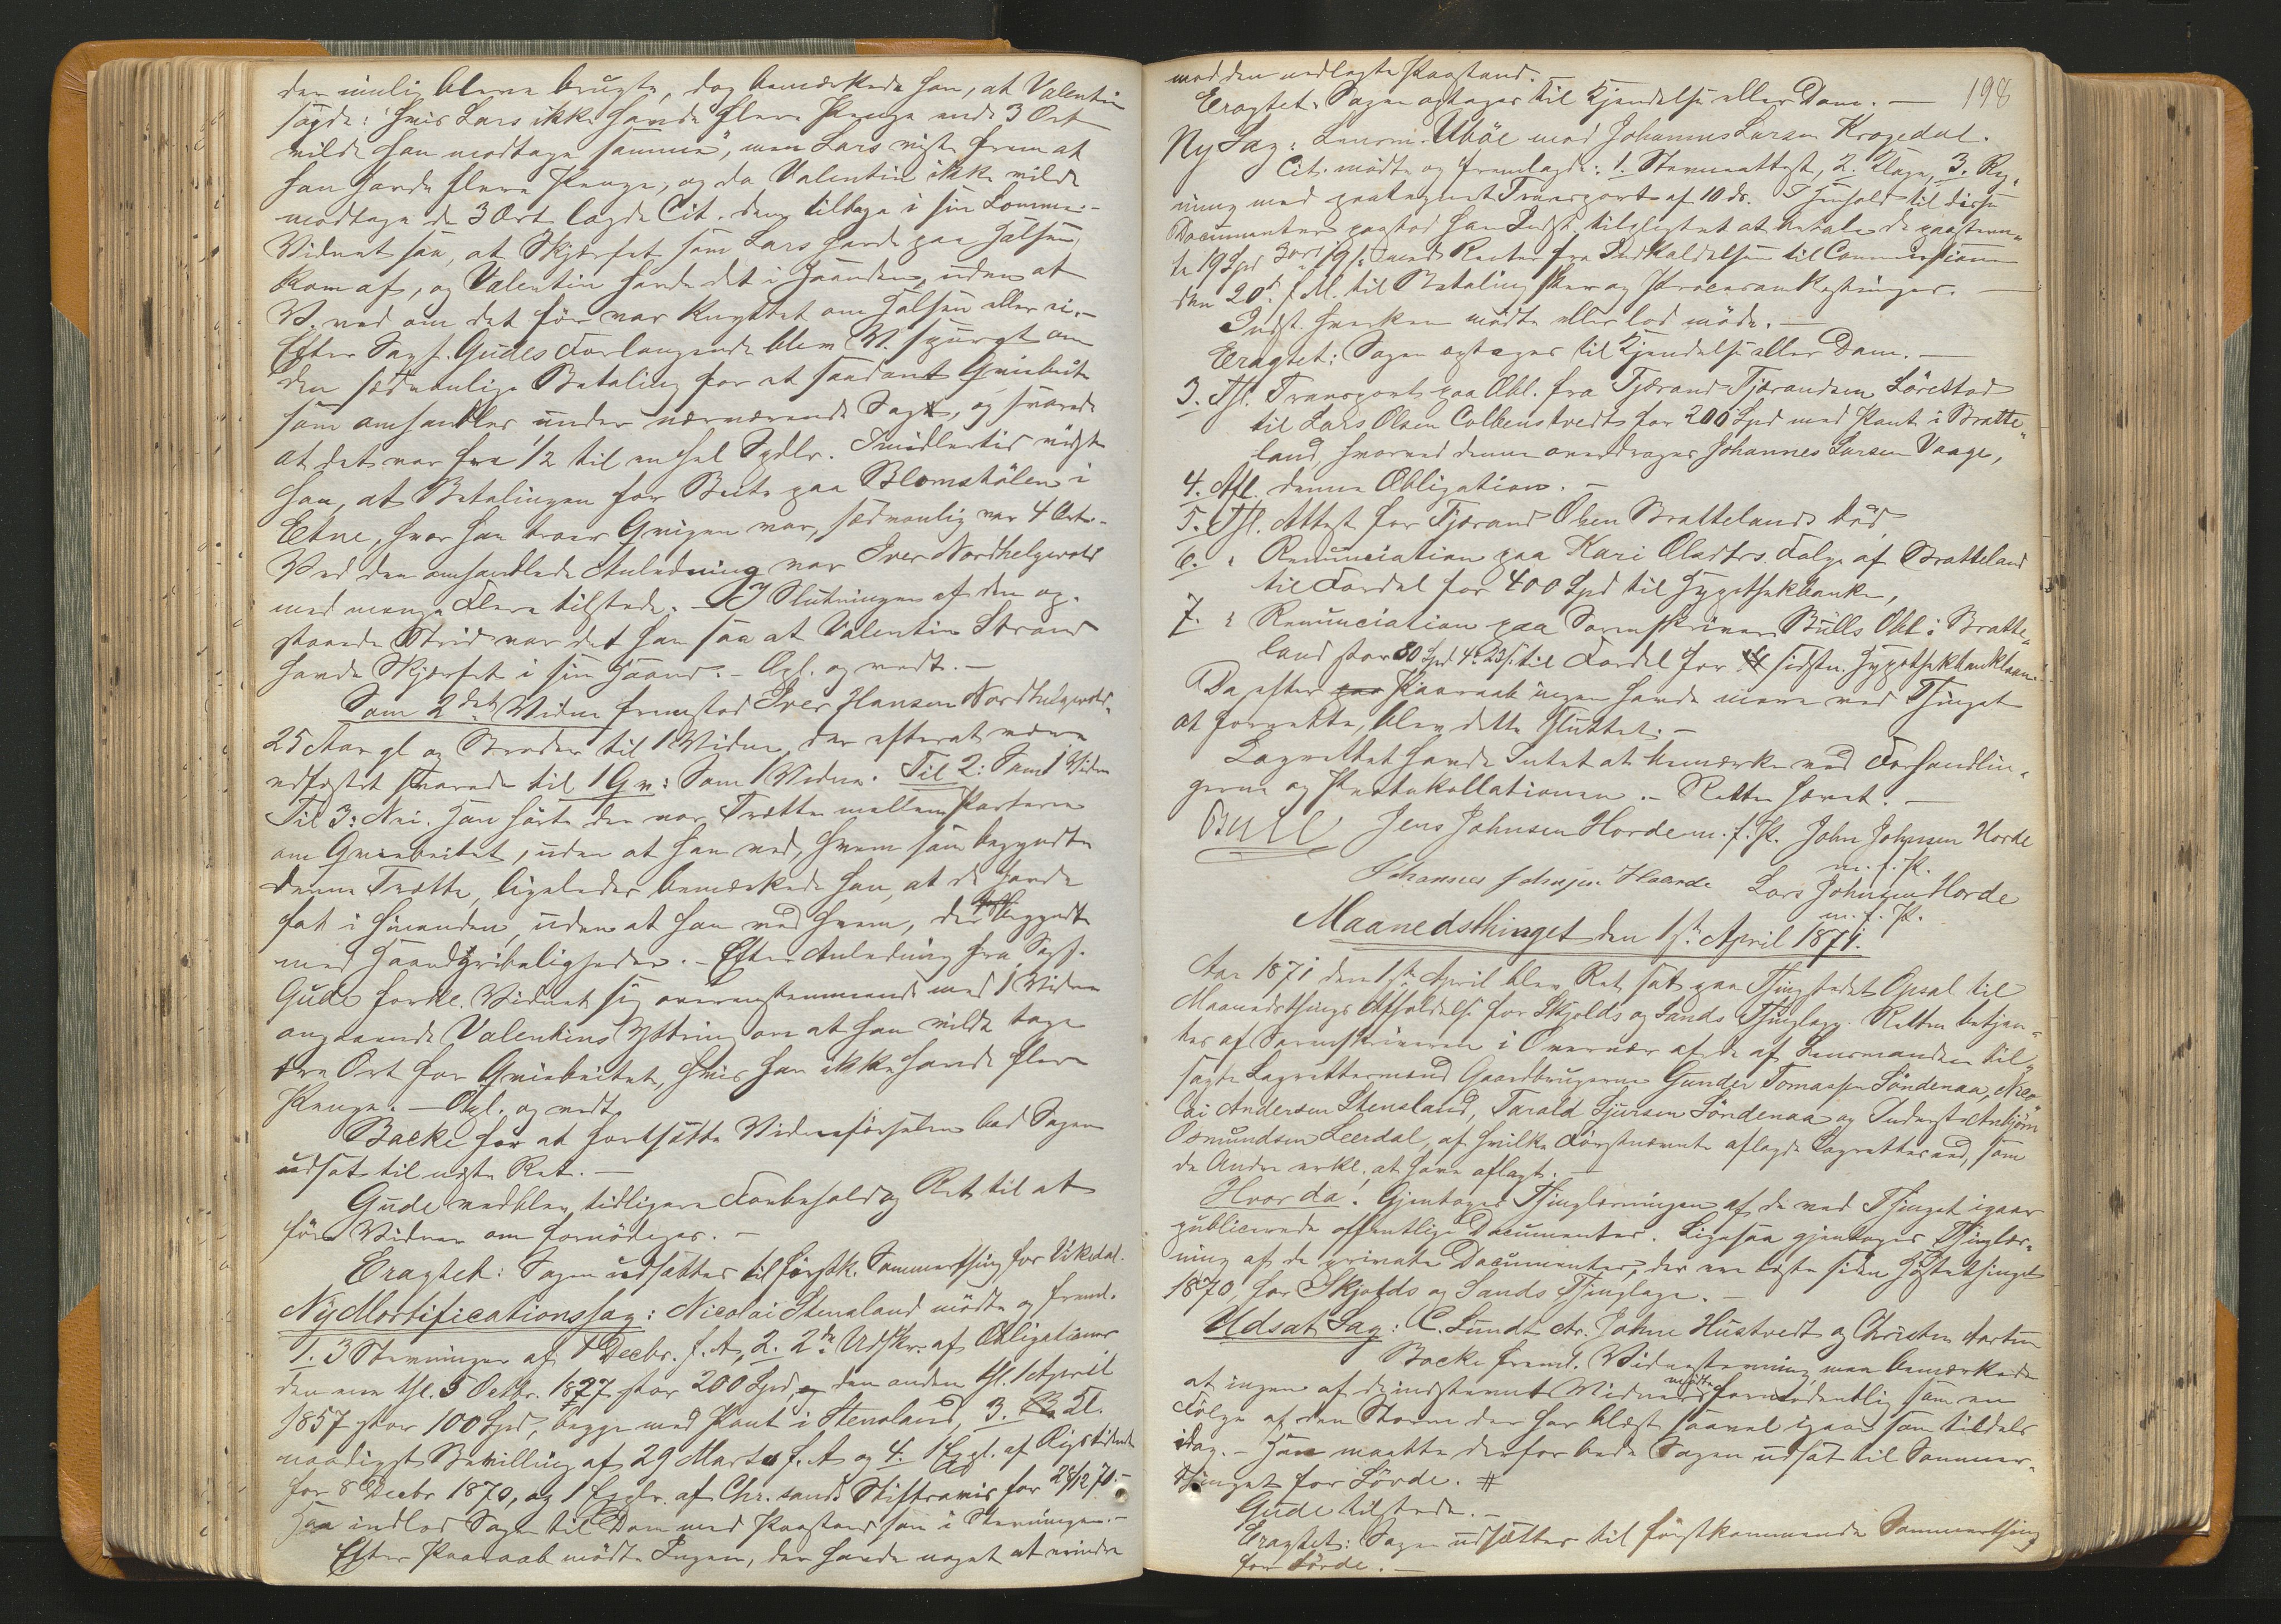 der imellem bleve brugte, dog bemærkede han, at Valentin
sagde: "hvis Lars ikke havde flere Penge end 3 Ort
vilde han modtage samme", men Lars viste frem at
han havde flere Penge, og da Valentin ikke vilde
modtage de 3 Ort lagde Cit. dem tilbage i sin Lomme. –
Vidnet saa, at Skjærfet som Lars havde paa Halsen,
kom af, og Valentin havde det i Haanden, uden at
V. ved om det før var knyttet om Halsen eller ei. –
Efter Sagf. Gudes Forlangende blev V. spurgt om
den sædvanlige Betaling for et saadant Griebeite
som omhandles under nærværende Sag, og svarede
at det var fra 1/2 til en hel Spdlr. Imidlertid vidste
han, at Betalingen for Beite paa Blomstølen i
Etne, hvor han troer Grigen var, sædvanlig var 4 Ort. –
Ved den omhandlede Anledning var Iver Nordhelgevold
med mange Flere tilstede. – I Slutningen af den op-
staaede Strid var det han saa at Valentin Strand
havde Skjærfet i sin Haand. – Opl. og vedt. –
Som 2det Vidne fremstod Iver Hansen Nordhelgevold,
25 Aar gl og Broder til 1 Vidne, der efterat være
edfæstet svarede til 1 Qv: Som 1 Vidne. Til 2: Som 1 Vidne
Til 3: Nei. Han hørte der var Trætte mellem Parterne
om Griebeitet, uden at han ved, hvem som begyndte
denne Trætte, ligeledes bemærkede han, at de havde
fat i hinanden, uden at han ved hvem, der begyndte
med Haandgribeligheder. – Efter Anledning fra Sagf.
Gude forkl. Vidnet sig overensstemmende med 1 Vidne
angaaende Valentins Yttring om at han vilde tage
tre Ort for Griebeitet, hvis han ikke havde flere
Penge. – Opl. og vedt.
Backe for at fortsætte Vidneførselen bad Sagen
udsat til næste Ret. –
Gude vedblev tidligere Forbehold og Ret til at
føre Vidner om fornødiges. –
Eragtet: Sagen udsættes til førstk. Sommerthing for Vikedal.
Ny Mortificationssag: Nicolai Stensland mødte og freml.
1. 3 Stevninger af 7 Decbr. f. A, 2. 2de Udskr. af Obligationer
den ene thl. 5 Octbr. 1827 stor 200 Spd, og den anden thl. 1 April
1857 stor 100 Spd, begge med Pant i Stensland, 3. Al.
naadigst Bevilling af 29 Marts f. A og 4. 1 Expl. af Rigstidende
for 8 Decbr 1870, og 1 Explr. af Chr.sands Stiftsavis for 28/12 70. –
Han indlod Sagen til Dom med Paastand som i Stevningen. –
Efter Paaraab mødte Ingen, der havde noget at erindre
198
mod den nedlagte Paastand.
Eragtet: Sagen optages til Kjendelse eller Dom. –
Ny Sag: Lensm. Ubøe mod Johannes Larsen Krogedal.
Cit. mødte og fremlagde: 1. Stevneattest, 2. Klage, 3. Reg-
ning med paategnet Transport af 10 ds. I Henhold til disse
Documenter paastod han Indst. tilpligtet at betale de paastevn-
te 19 Spd 3 ort 19 s. med Renter fra Indkaldelsen til Commissionen
den 20d f. M. til Betaling sker og Procesomkostninger. –
Indst. hverken mødte eller lod møde. –
Eragtet: Sagen optages til Kjendelse eller Dom. –
3. Thl. Transport paa Obl. fra Tjærand Tjærandsen Lørestad
til Lars Olsen Colbenstvedt for 200 Spd med Pant i Bratte-
land, hvorved denne overdrages Johannes Larsen Vaage,
4. Afl. denne Obligation. –
5. Thl. Attest for Tjærand Olsen Brattelands Død,
6. " Renunciation paa Kari Olsdtrs. Folge af Bratteland
til Fordel for 400 Spd til Hypothekbanken,
7. " Renunciation paa Sorenskriver Bülls Obl i Bratte-
land stor 80 Spd 4 " 23 s. til Fordel for sidstn. Hypothekbanklaan.
Da efter Paaraab ingen havde mere ved Thinget
at forrette, blev dette sluttet. –
Lagrettet havde Intet at bemærke ved Forhandlin-
gerne og Protokollationen. – Retten hævet. –
Bull Jens Johnsen Horde m. f. P. John Johnsen Horde
m. f. P.
Johannes Johnsen Haarde Lars Johnsen Horde
m. f. P.
Maanedsthinget den 1ste April 1871.
Aar 1871 den 1ste April blev Ret sat paa Thingstedet Opsal til
Maanedsthings Afholdelse for Skjolds og Sands Thinglage. Retten betjen-
tes af Sorenskriveren i Overvær af de af Lensmanden til-
sagte Lagrettesmænd Gaardbrugerne Gunder Tomassen Søndenaa, Nico-
lai Andersen Stensland, Tarald Sjursen Søndenaa og Inderst Anbjørn
Osmundsen Leerdal, af hvilke Førstnævnte aflagde Lagrettesed, som
de Andre erkl. at have aflagt. –
Hvor da: Gjentoges Thinglæsningen af de ved Thinget igaar
publicerede offentlige Documenter. Ligesaa gjentoges Thinglæs-
ning af de private Documenter, der ere læste siden Høstethinget
1870, for Skjolds og Sands Thinglage. –
Udsat Sag: C. Lundt ctr. Johne Hustvedt og Christen Aartun
Backe freml. Vidnestevning, men bemærkede
at ingen af de indstevnte Vidner mødte formodentlig som en
Følge af den Storm der har blæst saavel igaar som tildels
idag. – Han maatte derfor bede Sagen udsat til Sommer-
thinget for Sørde. #
Gude tilstede. –
Eragtet: Sagen udsættes til førstkommende Sommerthing
for Sørde. –